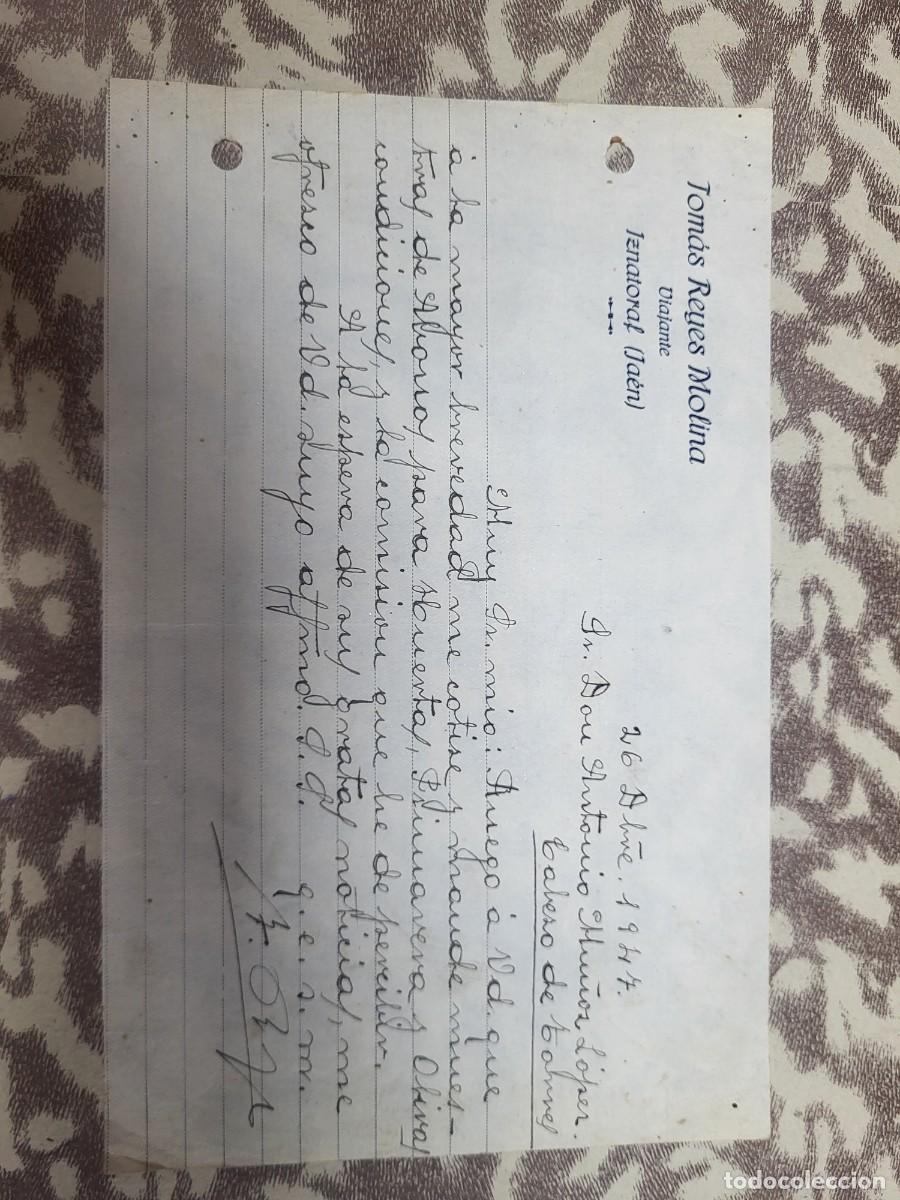 Tomás Reyes Molina
Viajante
Iznatoraf (Jaén)
26 Dbre. 1947.
Sr. Don Antonio Muñoz López.
Cabeso de
Muy Sr. mio: Ruego á Vd. que
á la mayor brevedad me cotise y mande mues-
tras de Abonos para simientas, Primavera y Olivas
condiciones y la comision que he de percibir.
A la espera de sus gratas noticias, me
ofresco de Vd. suyo affmo. S.S. q.e.s.m.
todocoleccion